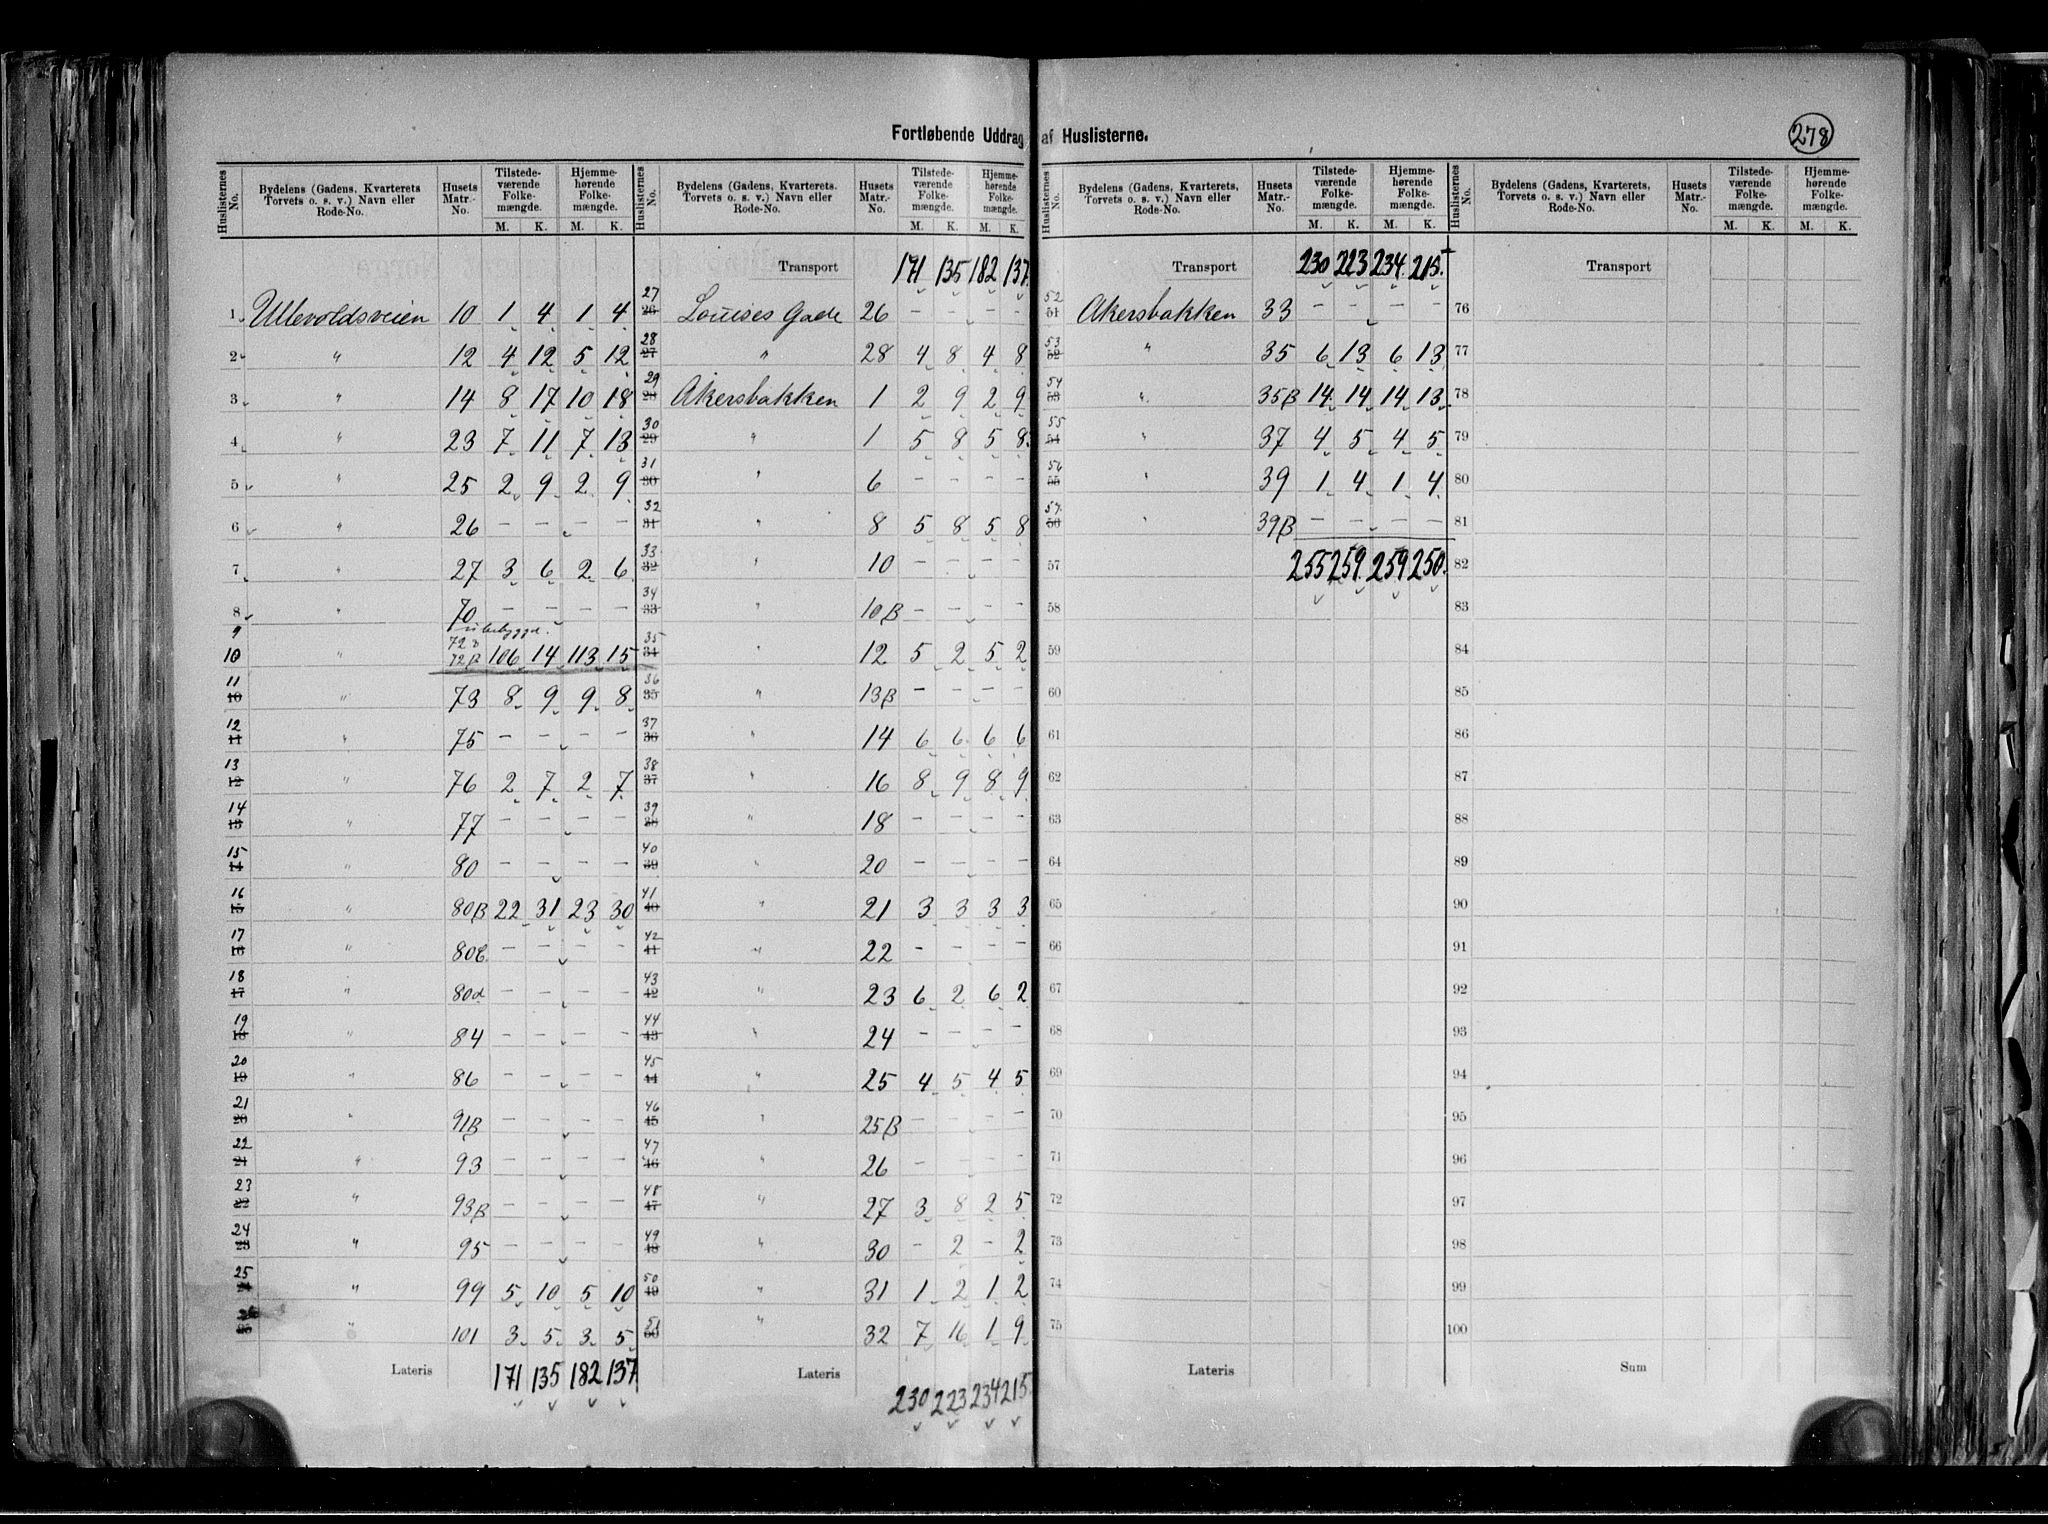 Fortløbende Uddrag af Huslisterne.
278
Huslisternes No. | Bydelens (Gadens, Kvarterets, Torvets o. s. v.) Navn eller Rode-No. | Husets Matr.-No. | Tilstedeværende Folkemængde. M. K. | Hjemmehørende Folkemængde. M. K.
1 Ullevoldsveien 10 1 4 1 4
2 " 12 4 12 5 12
3 " 14 8 17 10 18
4 " 23 7 11 7 13
5 " 25 2 9 2 9
6 " 26 – – – –
7 " 27 3 6 2 6
8 " 70 – – – –
9 ubebyggd.
10 " 72B 106 14 113 15
11 10 " 73 8 9 9 8
12 11 " 75 – – – –
13 12 " 76 2 7 2 7
14 13 " 77 – – – –
15 14 " 80 – – – –
16 15 " 80B 22 31 23 30
17 16 " 80c – – – –
18 17 " 80d – – – –
19 18 " 84 – – – –
20 19 " 86 – – – –
21 20 " 91B – – – –
22 21 " 93 – – – –
23 22 " 93B – – – –
24 23 " 95 – – – –
25 24 " 99 5 10 5 10
26 25 " 101 3 5 3 5
Lateris 171 135 182 137
Huslisternes No. | Bydelens (Gadens, Kvarterets. Torvets o. s. v.) Navn eller Rode-No. | Husets Matr.-No. | Tilstedeværende Folkemængde. M. K. | Hjemmehørende Folkemængde. M. K.
Transport 171 135 182 137
27 26 Louises Gade 26 – – – –
28 27 " 28 4 8 4 8
29 28 Akersbakken 1 2 9 2 9
30 29 " 1 5 8 5 8
31 30 " 6 – – – –
32 31 " 8 5 8 5 8
33 32 " 10 – – – –
34 33 " 10B – – – –
35 34 " 12 5 2 5 2
36 35 " 13B – – – –
37 36 " 14 6 6 6 6
38 37 " 16 8 9 8 9
39 38 " 18 – – – –
40 39 " 20 – – – –
41 40 " 21 3 3 3 3
42 41 " 22 – – – –
43 42 " 23 6 2 6 2
44 43 " 24 – – – –
45 44 " 25 4 5 4 5
46 45 " 25B – – – –
47 46 " 26 – – – –
48 47 " 27 3 8 2 5
49 48 " 30 – 2 – 2
50 49 " 31 1 2 1 2
51 50 " 32 7 16 1 9
Lateris 230 223 234 215
Huslisternes No. | Bydelens (Gadens, Kvarterets, Torvets o. s. v.) Navn eller Rode-No. | Husets Matr.-No. | Tilstedeværende Folkemængde. M. K. | Hjemmehørende Folkemængde. M. K.
Transport 230 223 234 215
52 51 Akersbakken 33 – – – –
53 52 " 35 6 13 6 13
54 53 " 35B 14 14 14 13
55 54 " 37 4 5 4 5
56 55 " 39 1 4 1 4
57 56 " 39B – – – –
57 255 259 259 250
58
59
60
61
62
63
64
65
66
67
68
69
70
71
72
73
74
75
Lateris
Huslisternes No. | Bydelens (Gadens, Kvarterets, Torvets o. s. v.) Navn eller Rode-No. | Husets Matr.-No. | Tilstedeværende Folkemængde. M. K. | Hjemmehørende Folkemængde. M. K.
Transport
76
77
78
79
80
81
82
83
84
85
86
87
88
89
90
91
92
93
94
95
96
97
98
99
100
Sum